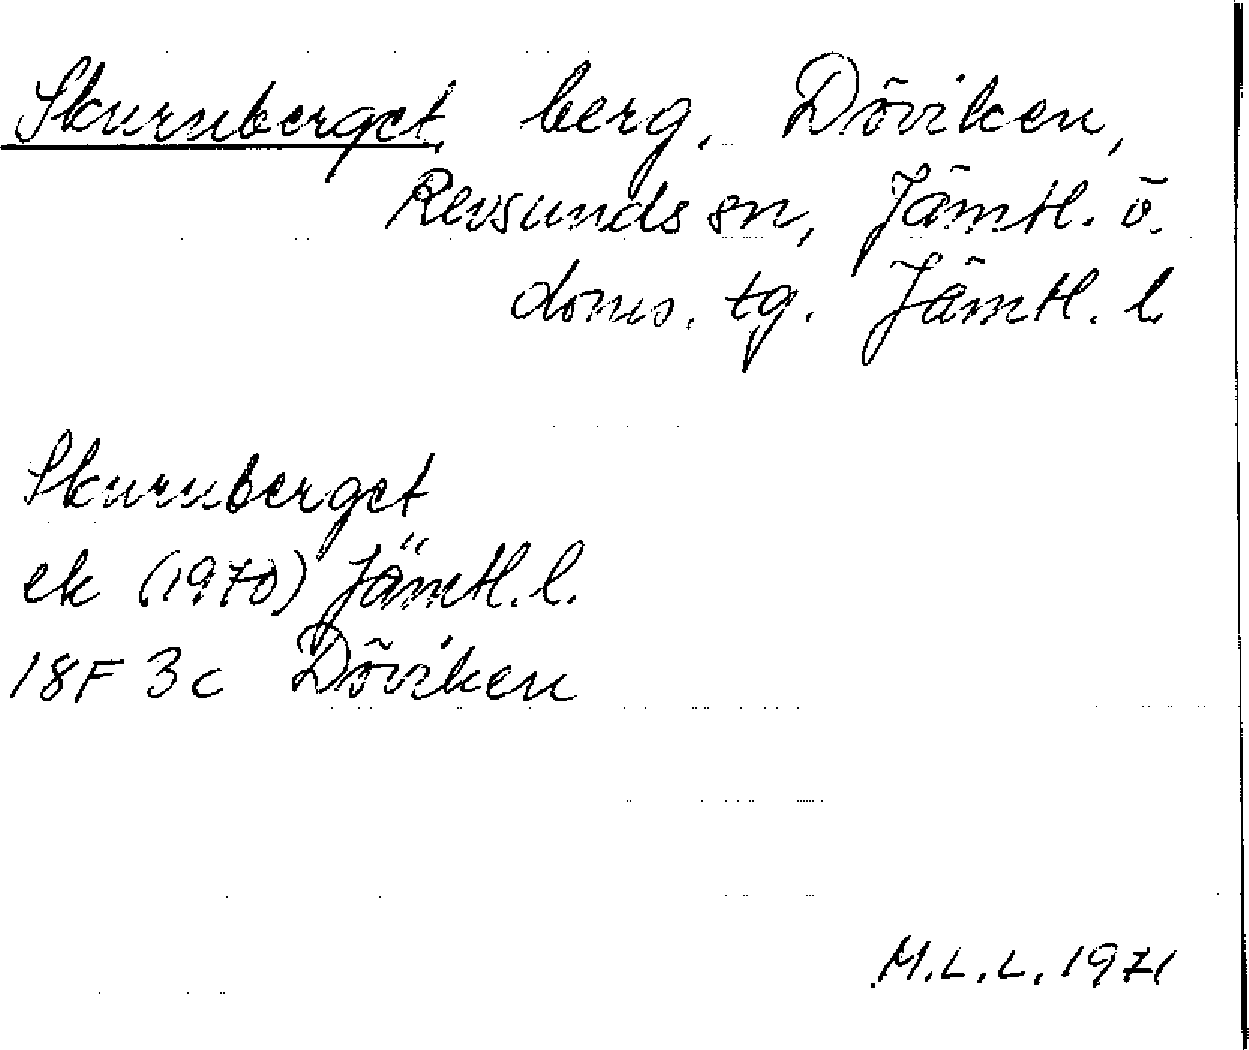 Skurnberget, berg, Döviken,
Revsunds sn, Jämtl. ö.
doms. tg. Jämtl. l.
Skurnberget
ek (1970) Jämtl. l.
18F 3c Döviken
M.L.L. 1971